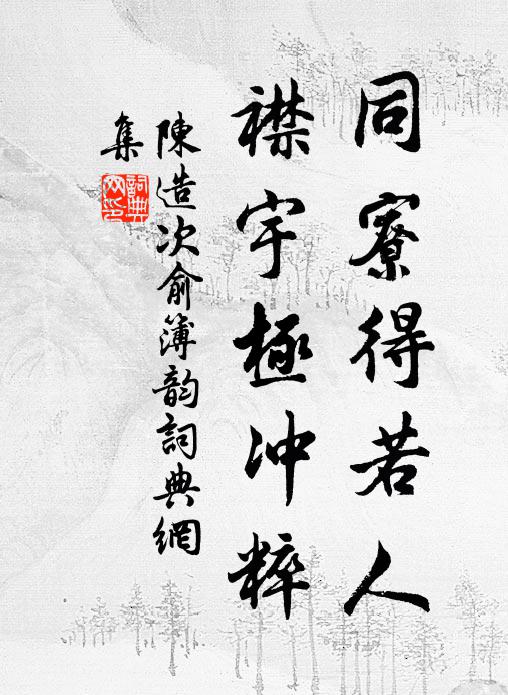 同寮得若人
襟宇極冲粹
陳造次俞簿韵詞典網
集
詞典网印